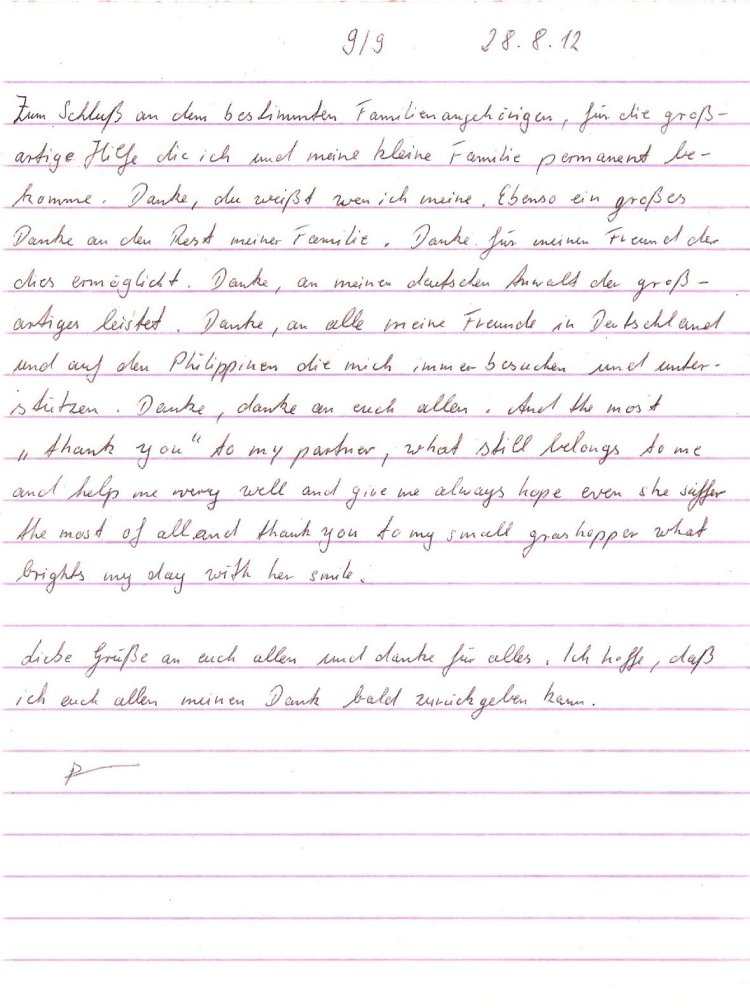 9/9 28.8.12
Zum Schluß an dem bestimmten Familienangehörigen, für die groß-
artige Hilfe die ich und meine kleine Familie permanent be-
komme. Danke, du weißt wen ich meine. Ebenso ein großes
Danke an den Rest meiner Familie. Danke für meinen Freund der
dies ermöglicht. Danke, an meinen deutschen Anwalt der groß-
artiges leistet. Danke, an alle meine Freunde in Deutschland
und auf den Philippinen die mich immer besuchen und unter-
stützen. Danke, danke an euch allen. And the most
„thank you“ to my partner, what still belongs to me
and help me very well and give me always hope even she suffer
the most of all and thank you to my small grashopper what
brights my day with her smile.
Liebe Grüße an euch allen und danke für alles. Ich hoffe, daß
ich euch allen meinen Dank bald zurückgeben kann.